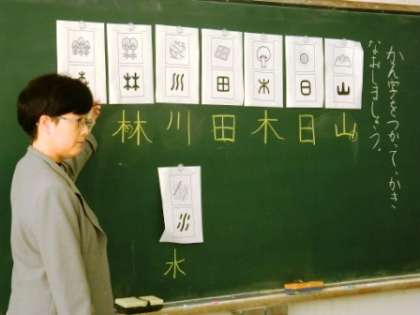 かん字をつかって、かき
なおしましょう。
山 日 木 田 川 林
水